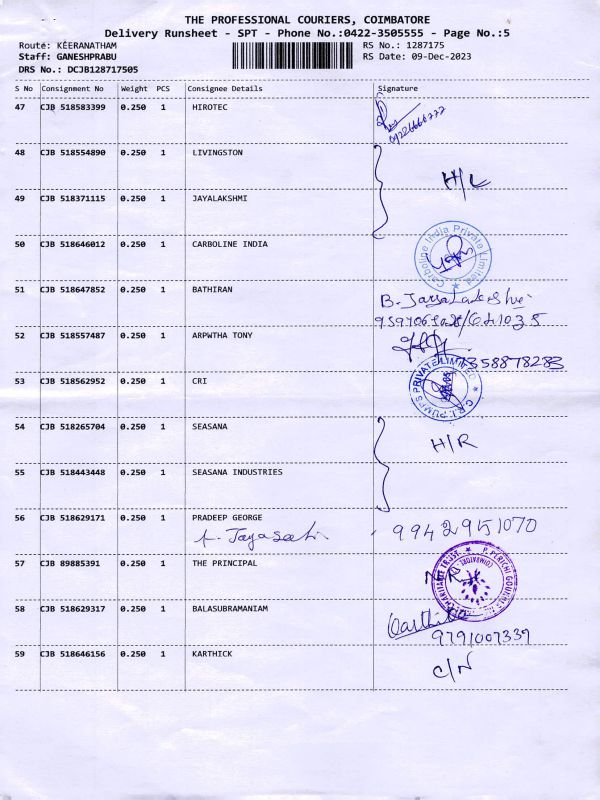 THE PROFESSIONAL COURIERS, COIMBATORE
Delivery Runsheet - SPT - Phone No.:0422-3505555 - Page No.:5
Route: KEERANATHAM RS No.: 1287175
Staff: GANESHPRABU RS Date: 09-Dec-2023
DRS No.: DCJB128717505
S No Consignment No Weight PCS Consignee Details Signature
47 CJB 518583399 0.250 1 HIROTEC
48 CJB 518554890 0.250 1 LIVINGSTON
H/L
49 CJB 518371115 0.250 1 JAYALAKSHMI
50 CJB 518646012 0.250 1 CARBOLINE INDIA
Carboline India Private Limited
51 CJB 518647852 0.250 1 BATHIRAN
52 CJB 518557487 0.250 1 ARPWTHA TONY
7358878283
53 CJB 518562952 0.250 1 CRI
C.R.I. PUMPS PRIVATE LIMITED
54 CJB 518265704 0.250 1 SEASANA
H/R
55 CJB 518443448 0.250 1 SEASANA INDUSTRIES
56 CJB 518629171 0.250 1 PRADEEP GEORGE
9942951070
57 CJB 89885391 0.250 1 THE PRINCIPAL
58 CJB 518629317 0.250 1 BALASUBRAMANIAM
Karthika
9791007339
59 CJB 518646156 0.250 1 KARTHICK
C/N